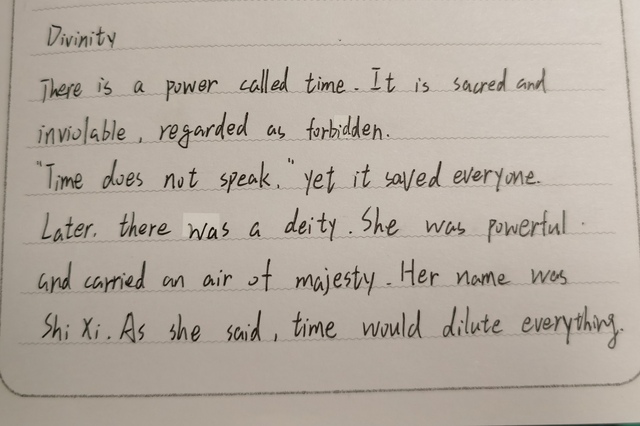 Divinity
There is a power called time. It is sacred and
inviolable, regarded as forbidden.
"Time does not speak," yet it saved everyone.
Later, there was a deity. She was powerful
and carried an air of majesty. Her name was
Shi Xi. As she said, time would dilute everything.